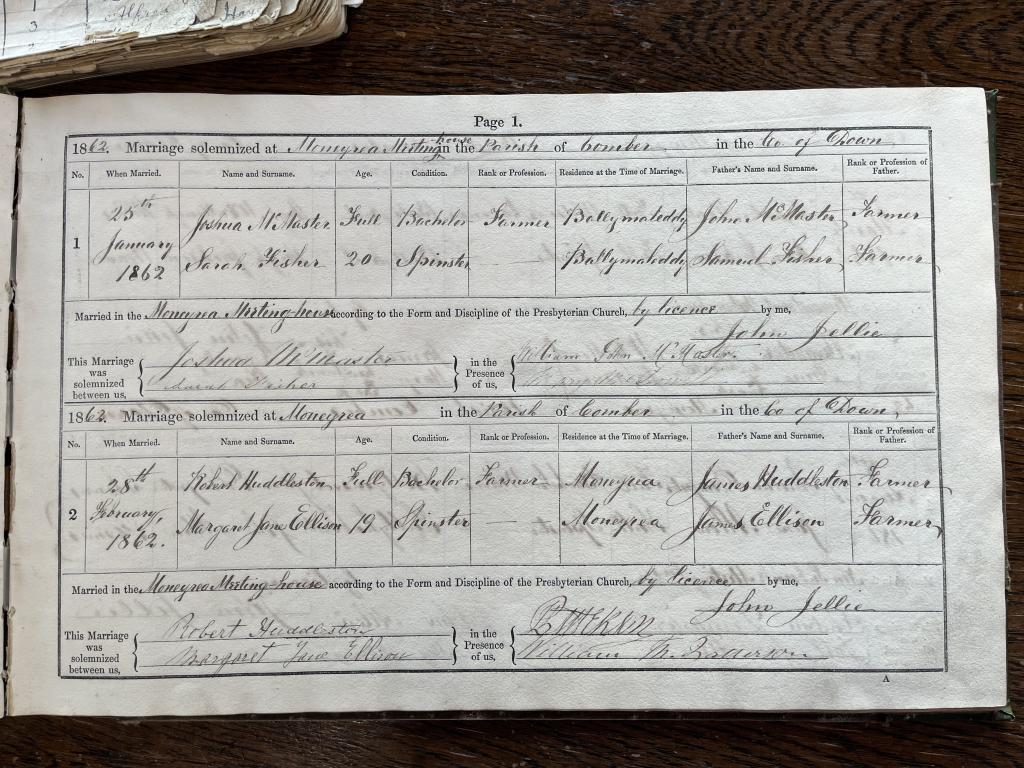 Alfred
Page 1.
1862. Marriage solemnized at Moneyrea Meeting house in the Parish of Comber in the Co of Down
No. When Married. Name and Surname. Age. Condition. Rank or Profession. Residence at the Time of Marriage. Father's Name and Surname. Rank or Profession of Father.
25th Joshua McMaster Full Bachelor Farmer Ballymaleddy John McMaster Farmer
1 January
1862 Sarah Fisher 20 Spinster Ballymaleddy Samuel Fisher Farmer
Married in the Moneyrea Meeting-house according to the Form and Discipline of the Presbyterian Church, by licence by me,
John Jellie
This Marriage was solemnized between us, Joshua McMaster in the Presence of us, William John McMaster.
Sarah Fisher
1862. Marriage solemnized at Moneyrea in the Parish of Comber in the Co of Down,
No. When Married. Name and Surname. Age. Condition. Rank or Profession. Residence at the Time of Marriage. Father's Name and Surname. Rank or Profession of Father.
28th Robert Huddleston Full Bachelor Farmer Moneyrea James Huddleston Farmer
2 February,
1862. Margaret Jane Ellison 19 Spinster — Moneyrea James Ellison Farmer
Married in the Moneyrea Meeting-house according to the Form and Discipline of the Presbyterian Church, by licence by me,
John Jellie
This Marriage was solemnized between us, Robert Huddleston in the Presence of us,
Margaret Jane Ellison William
A